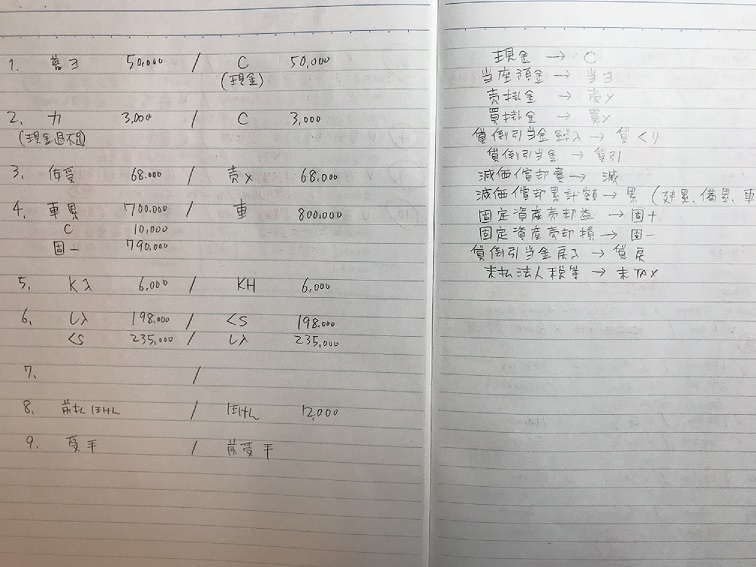 1. 普ヨ 50,000 / C 50,000
(現金)
2. カ 3,000 / C 3,000
(現金過不足)
3. 仮受 68,000 / 売× 68,000
4. 車累 700,000 / 車 800,000
C 10,000
固一 790,000
5. K入 6,000 / KH 6,000
6. し入 198,000 / くS 198,000
くS 235,000 / し入 235,000
7. /
8. 前払ほけん / ほけん 12,000
9. 受手 / 前受手
現金 → C
当座預金 → 当ヨ
売掛金 → 売×
買掛金 → 買×
貸倒引当金繰入 → 貸くり
貸倒引当金 → 貸引
減価償却費 → 減
減価償却累計額 → 累 (建累、備累、車
固定資産売却益 → 固+
固定資産売却損 → 固-
貸倒引当金戻入 → 貸戻
未払法人税等 → 未TAX